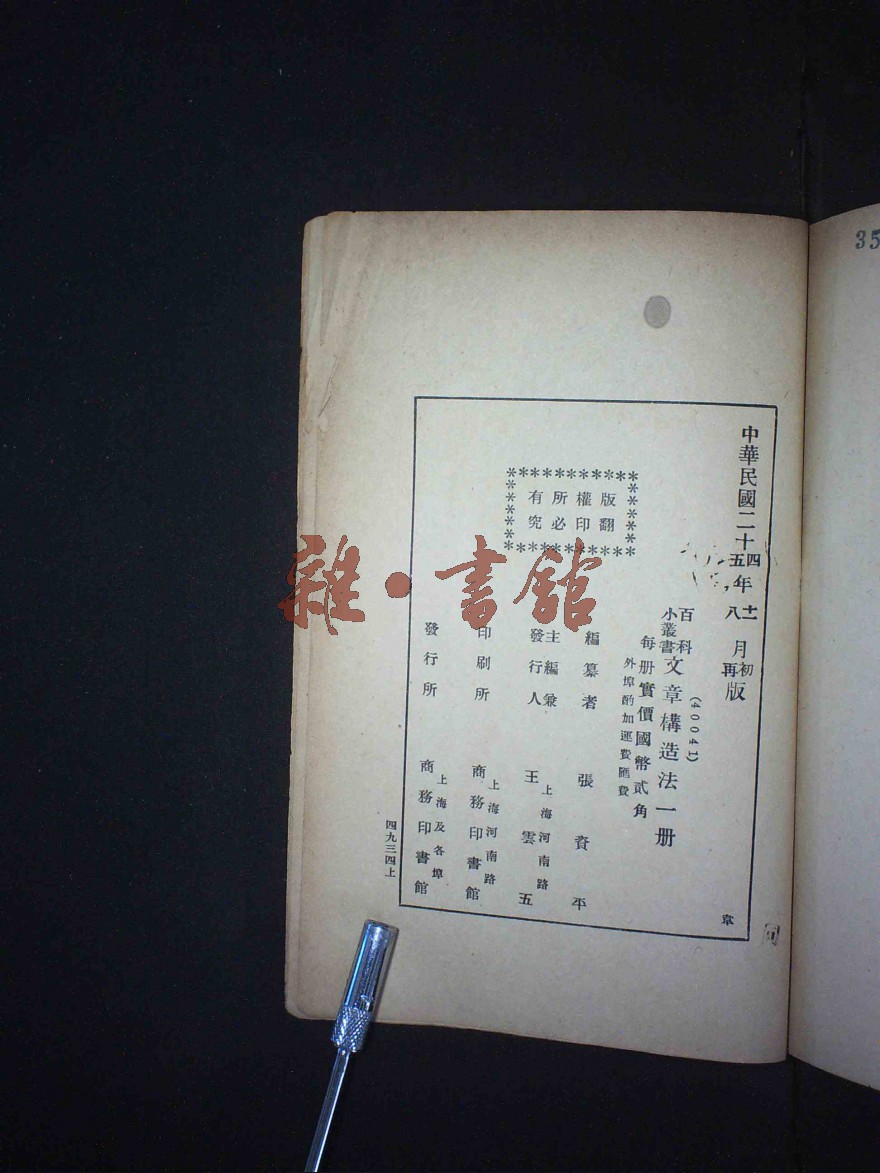 中華民國二十四年十二月初版
五 八 再
(40041)
百科小叢書 文章構造法一册
每册實價國幣貳角
外埠酌加運費匯費
版權所有
翻印必究
編纂者 張資平
主編兼發行人 王雲五
上海河南路
印刷所 商務印書館
上海河南路
發行所 商務印書館
上海及各埠
四九三四上
章
雜·書館
35